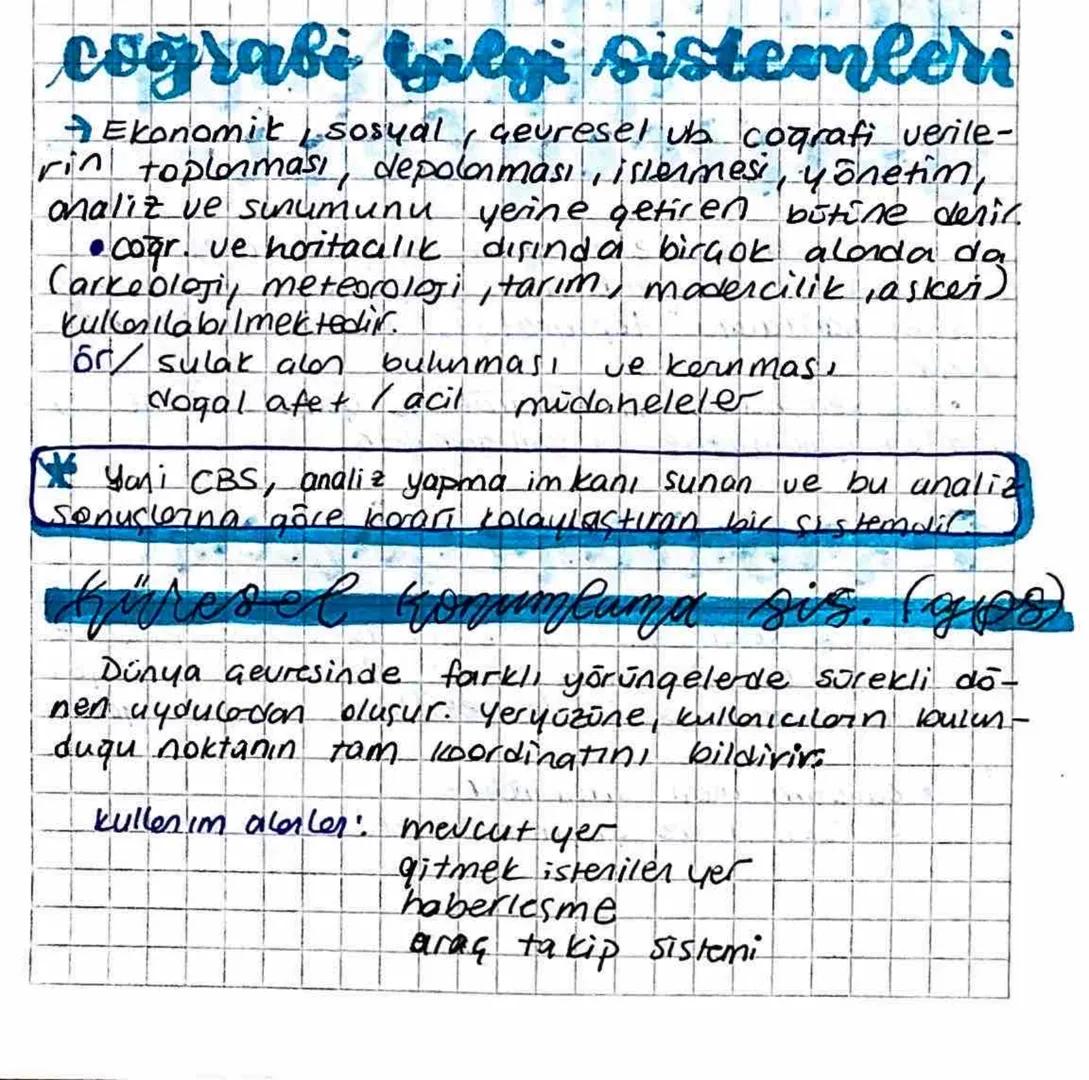 coğrafi bilgi sistemleri
→ Ekonomik, sosyal, çevresel vb coğrafi verile-
rin toplanması, depolanması, işlenmesi, yönetim,
analiz ve sunumunu yerine getiren bütüne denir.
• coğr. ve haritacılık dışında birçok alanda da
(arkeoloji, meteoroloji, tarım, madencilik, askeri)
kullanılabilmektedir.
ör/ sulak alan bulunması ve korunması
doğal afet / acil müdaheleler
* Yani CBS, analiz yapma imkanı sunan ve bu analiz
sonuçlarına göre kararı kolaylaştıran bir sistemdir.
küresel konumlama sis. (gps)
Dünya çevresinde farklı yörüngelerde sürekli dö-
nen uydulardan oluşur. Yeryüzüne, kullanıcıların bulun-
duğu noktanın tam koordinatını bildirir.
kullanım alanları: mevcut yer
gitmek istenilen yer
haberleşme
araç takip sistemi